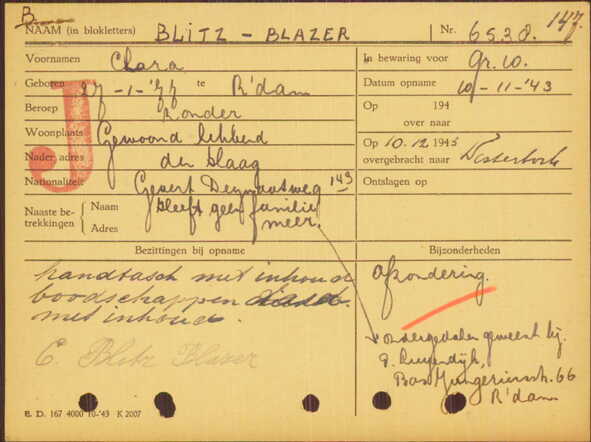 B.
147.
NAAM (in blokletters) BLITZ - BLAZER Nr. 6538.
Voornamen Clara In bewaring voor Gr. 10.
Geboren 27-1-'77 te R'dam Datum opname 10-11-'43
Beroep Zonder Op 194 over naar
Woonplaats Gewoond hebbend
Nader adres den Haag Op 10.12 1943 overgebracht naar Westerbork
Nationaliteit Gevert Deynootweg 143 Ontslagen op
Naaste betrekkingen Naam heeft geen familie
Adres meer.
J
Bezittingen bij opname
handtasch met inhoud
boodschappen
met inhoud.
C. Blitz Blazer
Bijzonderheden
Afzondering.
ondergedoken geweest bij.
Bas Jungeriusstr. 66
R'dam
E. D. 167 4000 10-'43 K 2007